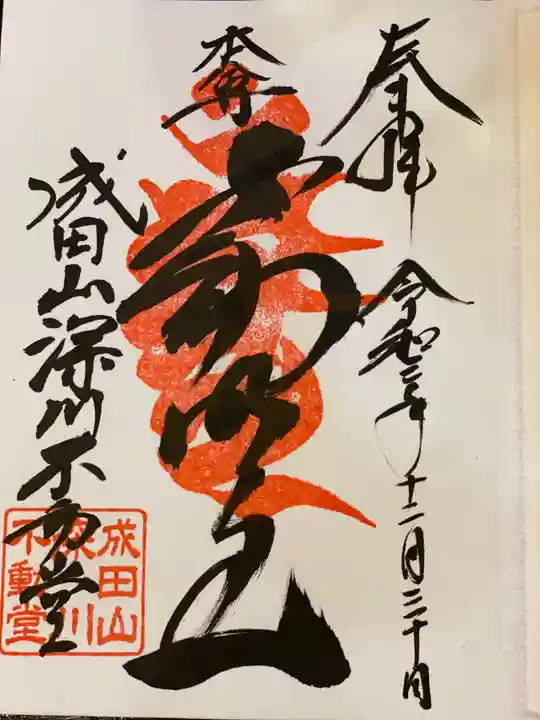 奉拝
令和三年十二月三十日
本尊
不動明王
成田山深川不動堂
成田山
深川
不動堂